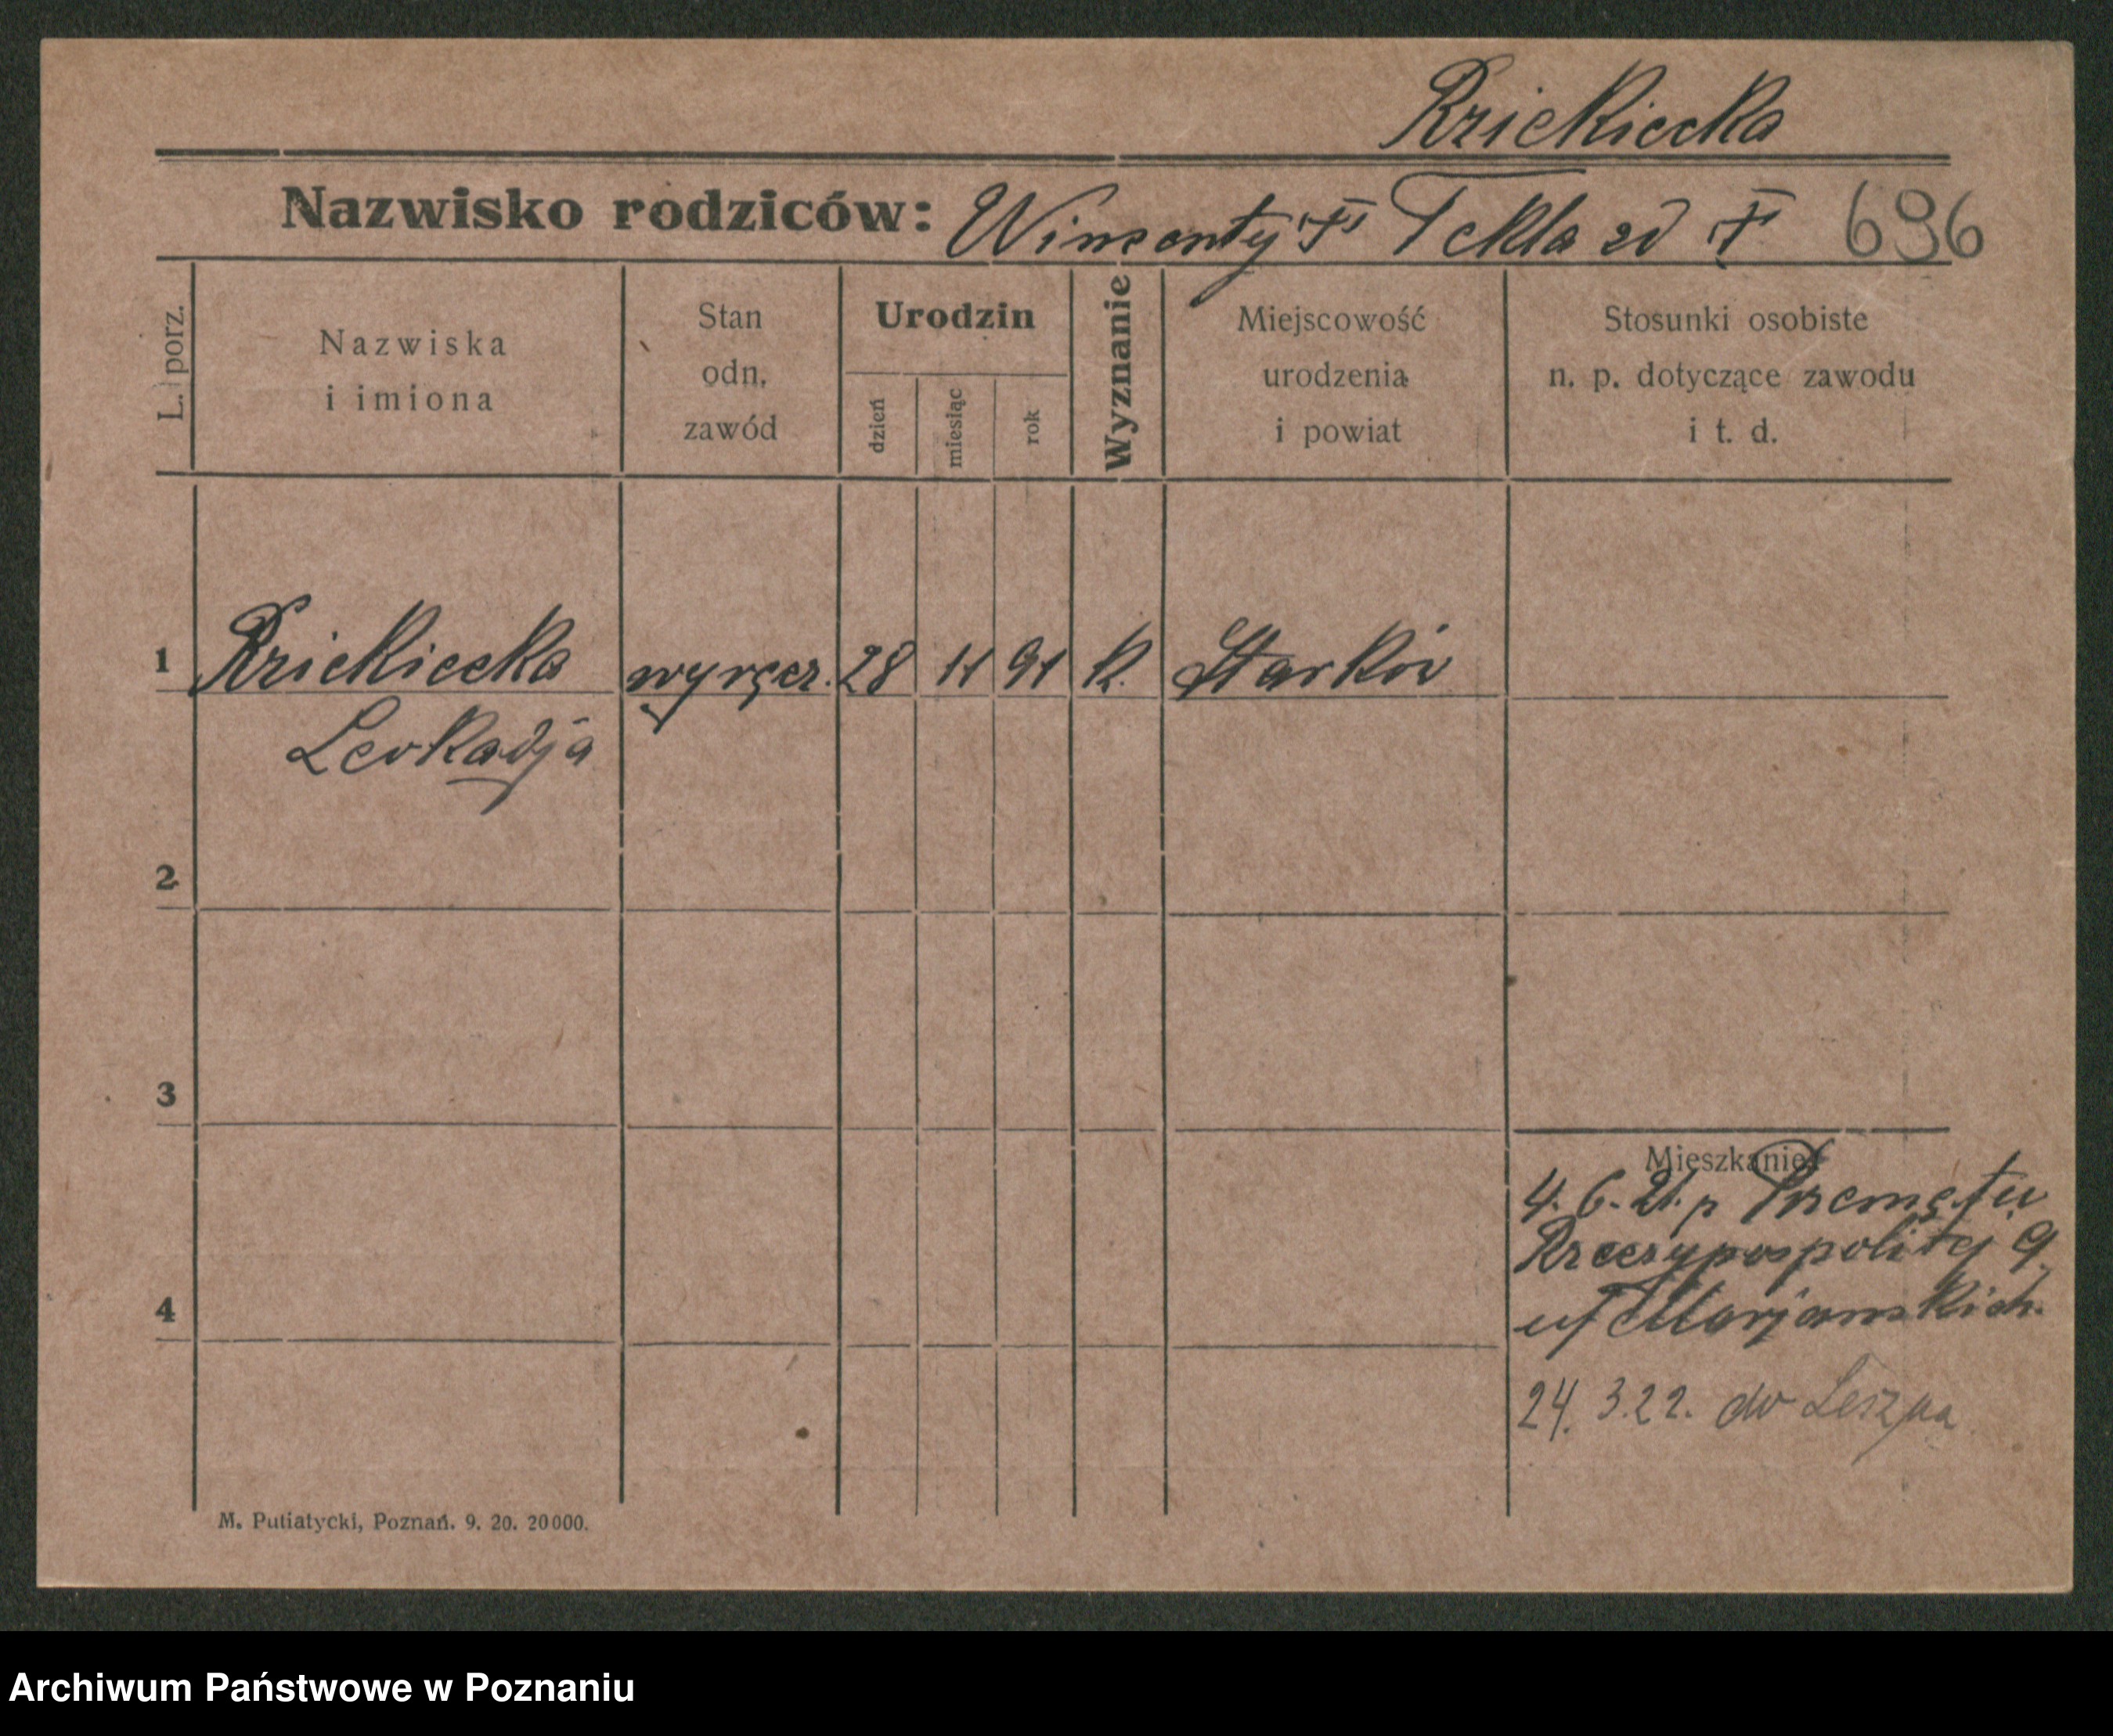 Rzickiecka
Nazwisko rodziców: Wincenty Tekla 696
L. porz.
Nazwiska
i imiona
Stan
odn.
zawód
Urodzin
dzień
miesiąc
rok
Wyznanie
Miejscowość
urodzenia
i powiat
Stosunki osobiste
n. p. dotyczące zawodu
i t. d.
1 Rzickiecka wyręcz. 28 11 91 K. Starków
Leokadja
2
3
4
Mieszkanie
4. 6. 21. p Przemętu
Rzeczypospolitej 9
u/ Marjańskich.
24. 3.22. do Leszna
M. Putiatycki, Poznań. 9. 20. 20000.
Archiwum Państwowe w Poznaniu